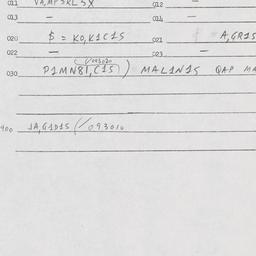 011 VA, MP3RL5X 012 —
013 — 014 —
020 $ = K0, K1C1S 021 A, GR1S
022 — 023 —
030 P1MN8I, C1S) MAL1N1S QAP MA
400 1A, G1D1S (/093010